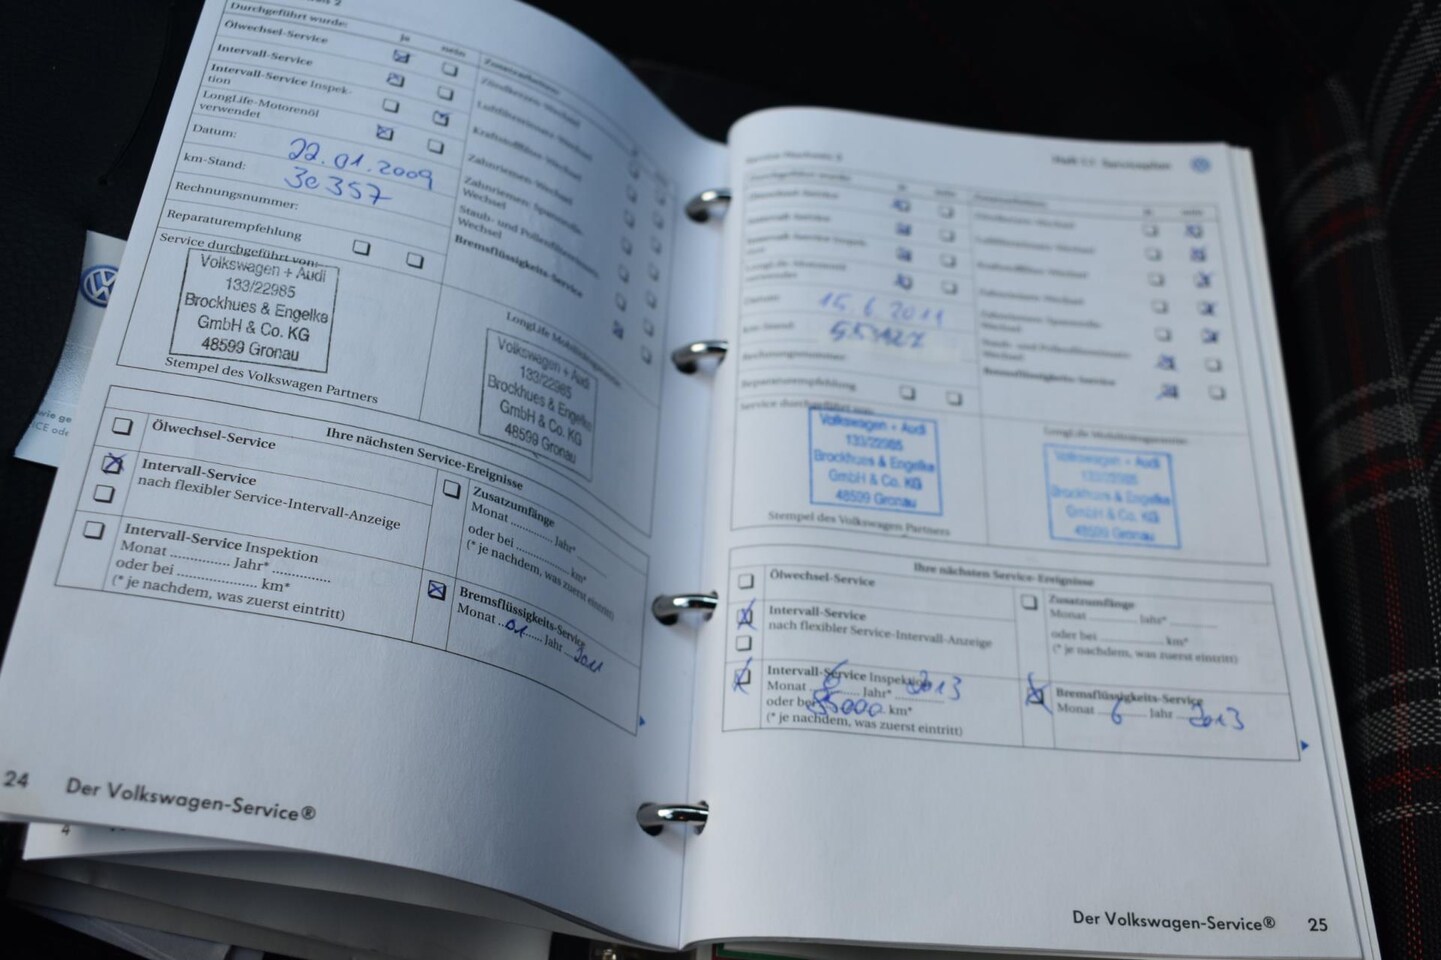 Durchgeführt wurde:
ja nein
Ölwechsel-Service
Intervall-Service
Intervall-Service Inspek-
tion
LongLife-Motorenöl
verwendet
Datum: 22.01.2009
km-Stand: 30357
Rechnungsnummer:
Reparaturempfehlung
Service durchgeführt von:
Volkswagen + Audi
133/22985
Brockhues & Engelke
GmbH & Co. KG
48599 Gronau
Stempel des Volkswagen Partners
Zusatzarbeiten
Zündkerzen-Wechsel
Luftfiltereinsatz-Wechsel
Kraftstofffilter-Wechsel
Zahnriemen-Wechsel
Zahnriemen-Spannrolle-
Wechsel
Staub- und Pollenfiltereinsatz-
Wechsel
Bremsflüssigkeits-Service
LongLife Mobilitätsgarantie
Volkswagen + Audi
133/22985
Brockhues & Engelke
GmbH & Co. KG
48599 Gronau
Ihre nächsten Service-Ereignisse
Ölwechsel-Service
Intervall-Service
nach flexibler Service-Intervall-Anzeige
Intervall-Service Inspektion
Monat ............... Jahr* ...............
oder bei ..................... km*
(* je nachdem, was zuerst eintritt)
Zusatzumfänge
Monat .......... Jahr*
oder bei .............. km*
(* je nachdem, was zuerst eintritt)
Bremsflüssigkeits-Service
Monat 01 Jahr 2011
24 Der Volkswagen-Service®
VW
4
ja nein
Ölwechsel-Service
Intervall-Service
LongLife-Motorenöl
verwendet
Datum: 15.6.2011
km-Stand:
Rechnungsnummer:
Reparaturempfehlung
Service durchgeführt von:
Volkswagen + Audi
133/22985
Brockhues & Engelke
GmbH & Co. KG
48599 Gronau
Stempel des Volkswagen Partners
Zahnriemen-Wechsel
Bremsflüssigkeits-Service
LongLife Mobilitätsgarantie
Volkswagen + Audi
133/22985
Brockhues & Engelke
GmbH & Co. KG
48599 Gronau
Ihre nächsten Service-Ereignisse
Ölwechsel-Service
Intervall-Service
nach flexibler Service-Intervall-Anzeige
Intervall-Service Inspektion
Monat 6 Jahr* 2013
oder bei km*
(* je nachdem, was zuerst eintritt)
Zusatzumfänge
Monat ............ Jahr* ............
oder bei .................. km*
(* je nachdem, was zuerst eintritt)
Bremsflüssigkeits-Service
Monat 6 Jahr 2013
Der Volkswagen-Service® 25